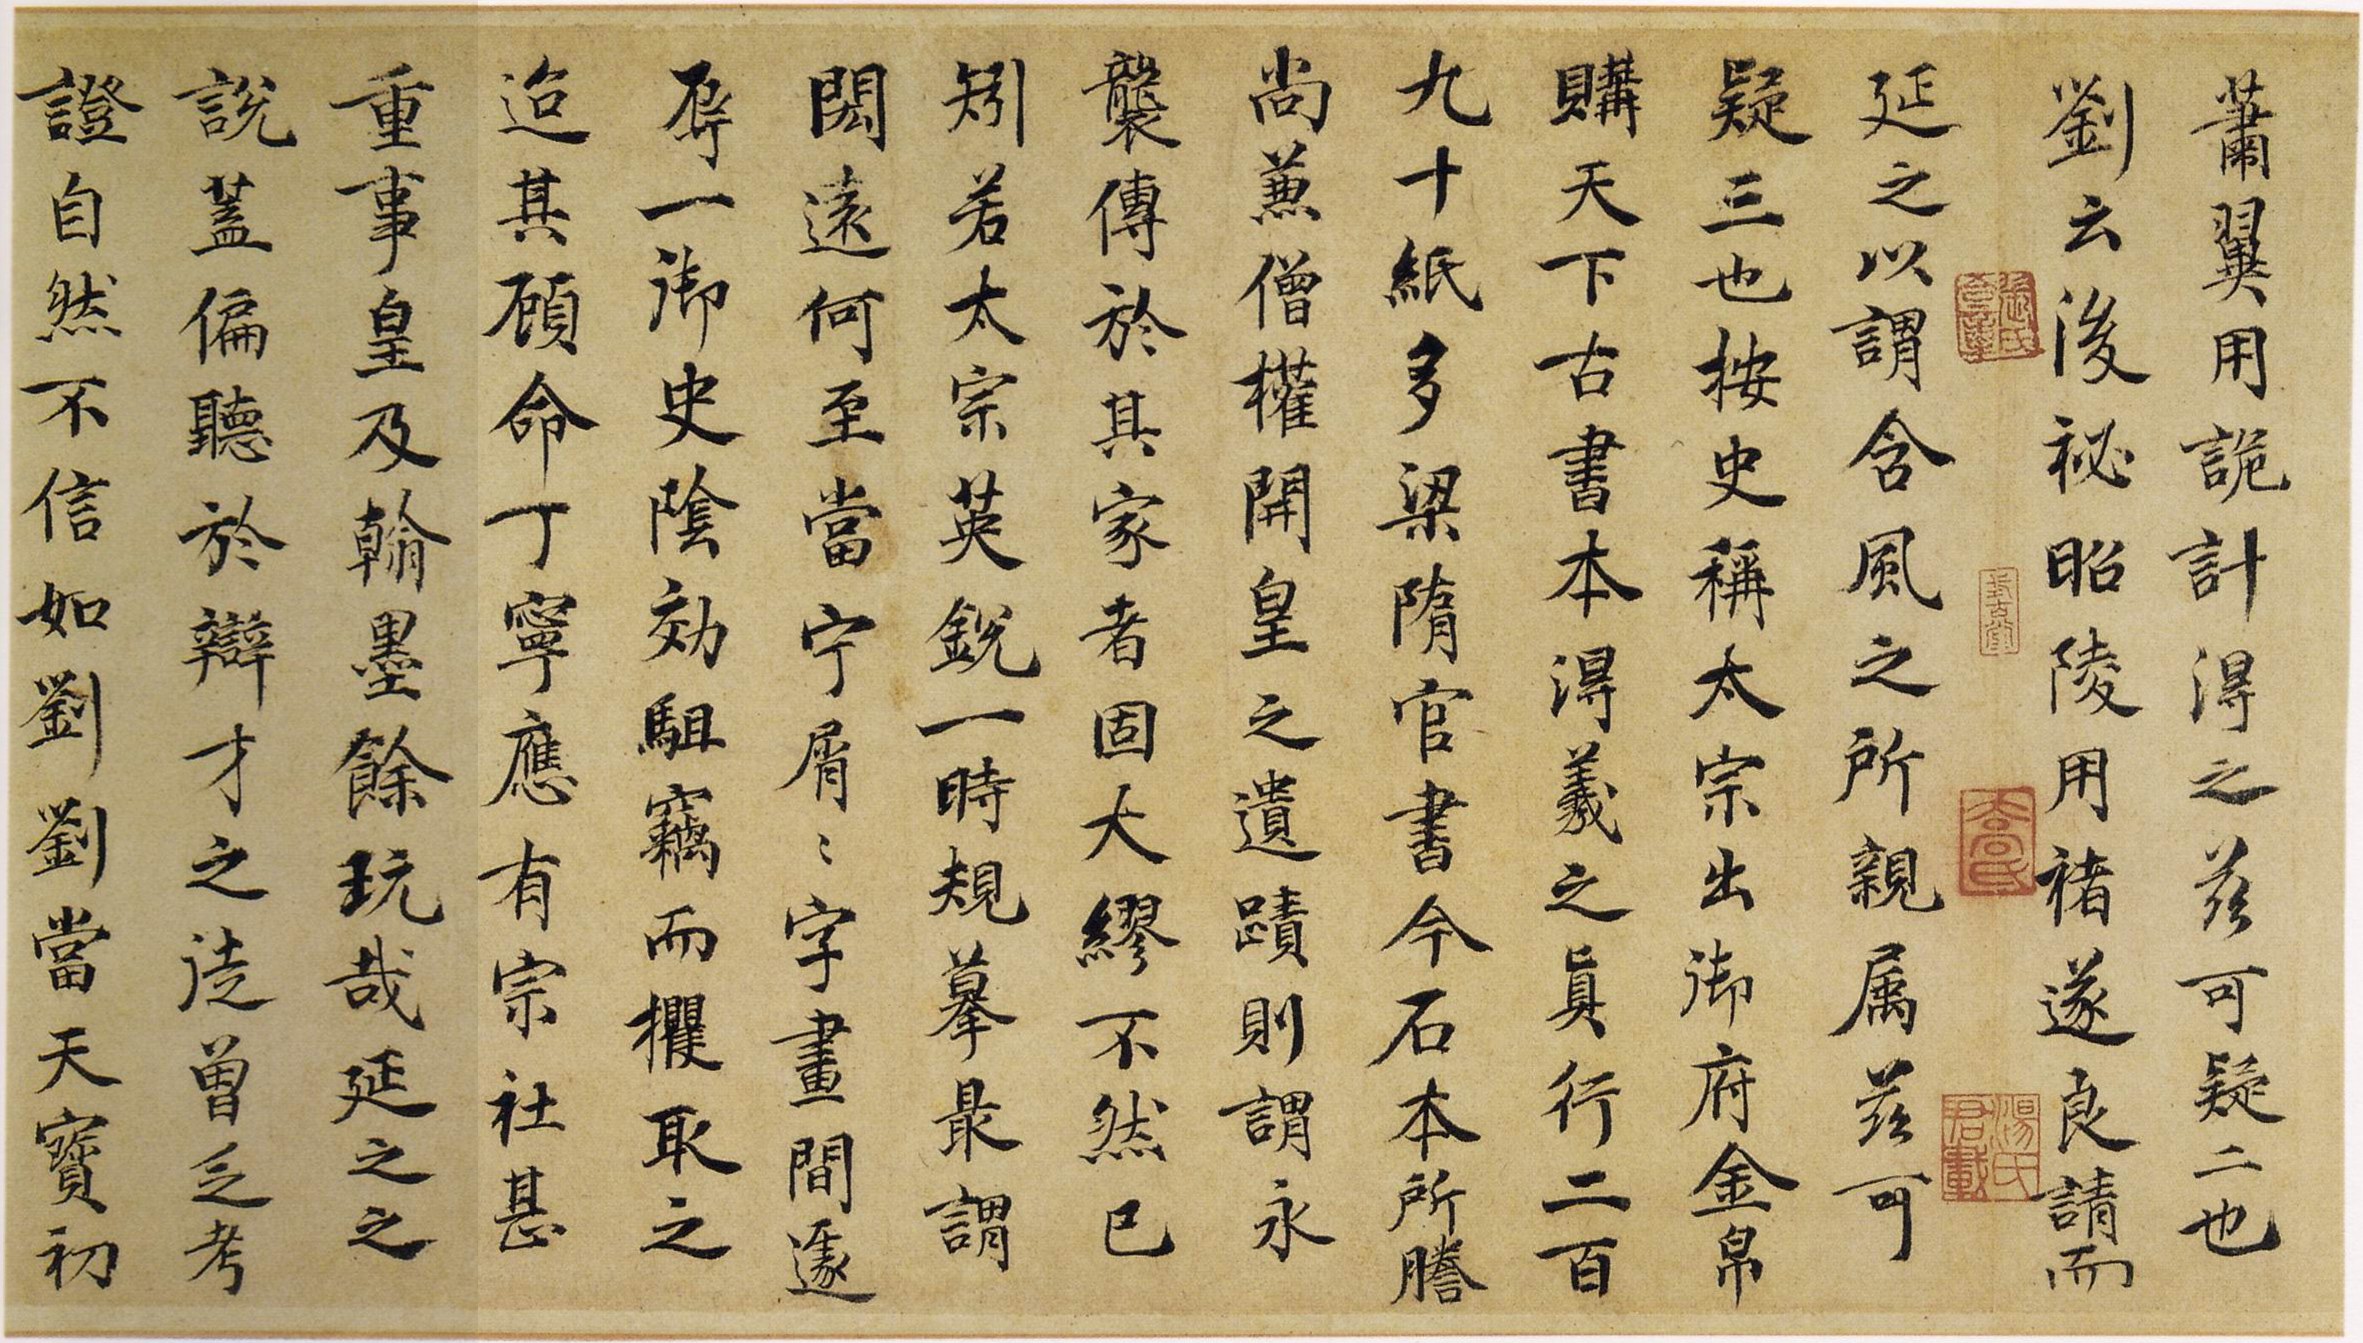 蕭翼用詭計得之茲可疑二也
劉云後祕昭陵用褚遂良請而
延之以謂含風之所親属茲可
疑三也按史稱太宗出御府金帛
購天下古書本得羲之真行二百
九十紙多梁隋官書今石本所謄
尚蕙僧權開皇之遺蹟則謂永
襲傳於其家者固大繆不然已
矧若太宗英銳一時規摹最謂
閎遠何至當宁屑〻字畫間遽
辱一御史陰効駔竊而攫取之
迨其顧命丁寧應有宗社甚
重事皇及翰墨餘玩哉延之之
說蓋偏聽於辯才之徒曾乏考
證自然不信如劉劉當天寶初
湯氏君載